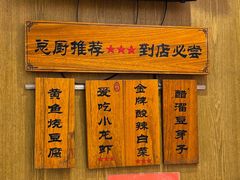 总厨推荐★★★到店必尝
黄鱼烧豆腐
爱吃小龙虾★★★
金牌酸辣白菜★★★
醋溜豆芽子